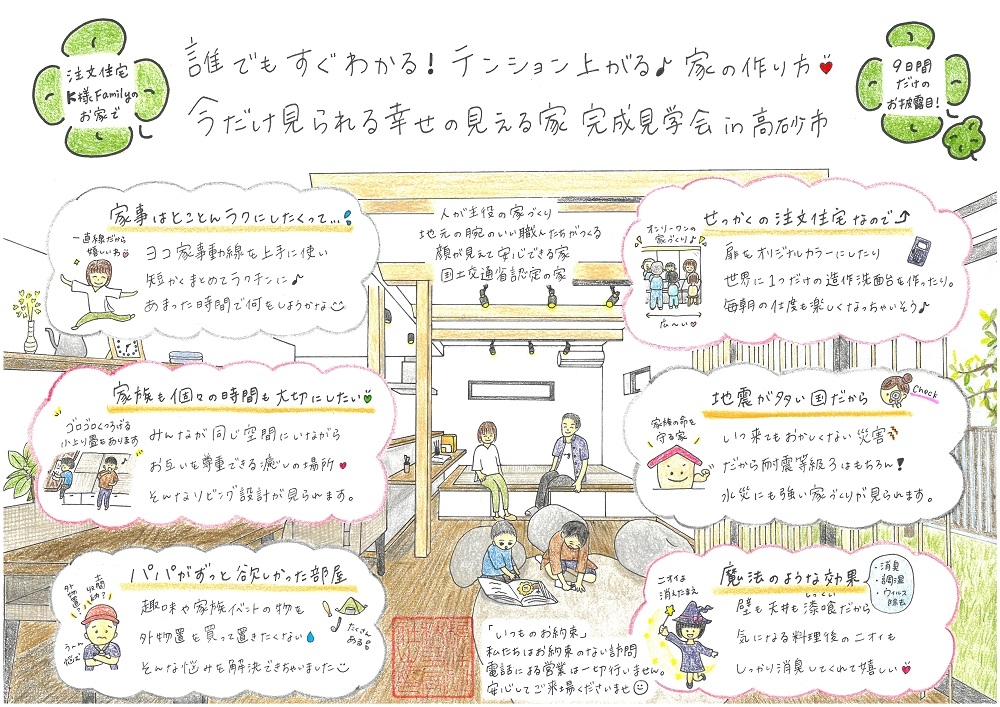 注文住宅
K様Familyの
お家で
誰でもすぐわかる！テンション上がる♪家の作り方♥
今だけ見られる幸せの見える家 完成見学会 in 高砂市
9日間
だけの
お披露目！
家事はとことんラクにしたくって…
一直線だから
嬉しいわ
ヨコ家事動線を上手に使い
短かくまとめてラクチンに♪
あまった時間で何をしようかな
人が主役の家づくり
地元の腕のいい職人たちがつくる
顔が見えて安心できる家
国土交通省認定の家
せっかくの注文住宅なので
オンリーワンの
家づくり♪
広〜い♥
扉をオリジナルカラーにしたり
世界に1つだけの造作洗面台を作ったり。
毎朝の仕度も楽しくなっちゃいそう♪
家族も個々の時間も大切にしたい
ゴロゴロくつろげる
小上り畳もあります
みんなが同じ空間にいながら
お互いを尊重できる癒しの場所♥
そんなリビング設計が見られます。
地震が多い国だから
Check
家族の命を
守る家
いつ来てもおかしくない災害
だから耐震等級3はもちろん！
水災にも強い家づくりが見られます。
パパがずっと欲しかった部屋
外物置？
うーん
悩む
趣味や家族イベントの物を
外物置を買って置きたくない
そんな悩みを解決できちゃいました
たくさん
ある
「いつものお約束」
私たちはお約束のない訪問
電話による営業は一切行いません。
安心してご来場くださいませ
魔法のような効果
・消臭
・調湿
・ウィルス
除去
ニオイよ
消えたまえ
しっくい
壁も天井も漆喰だから
気になる料理後のニオイも
しっかり消臭してくれて嬉しい♥